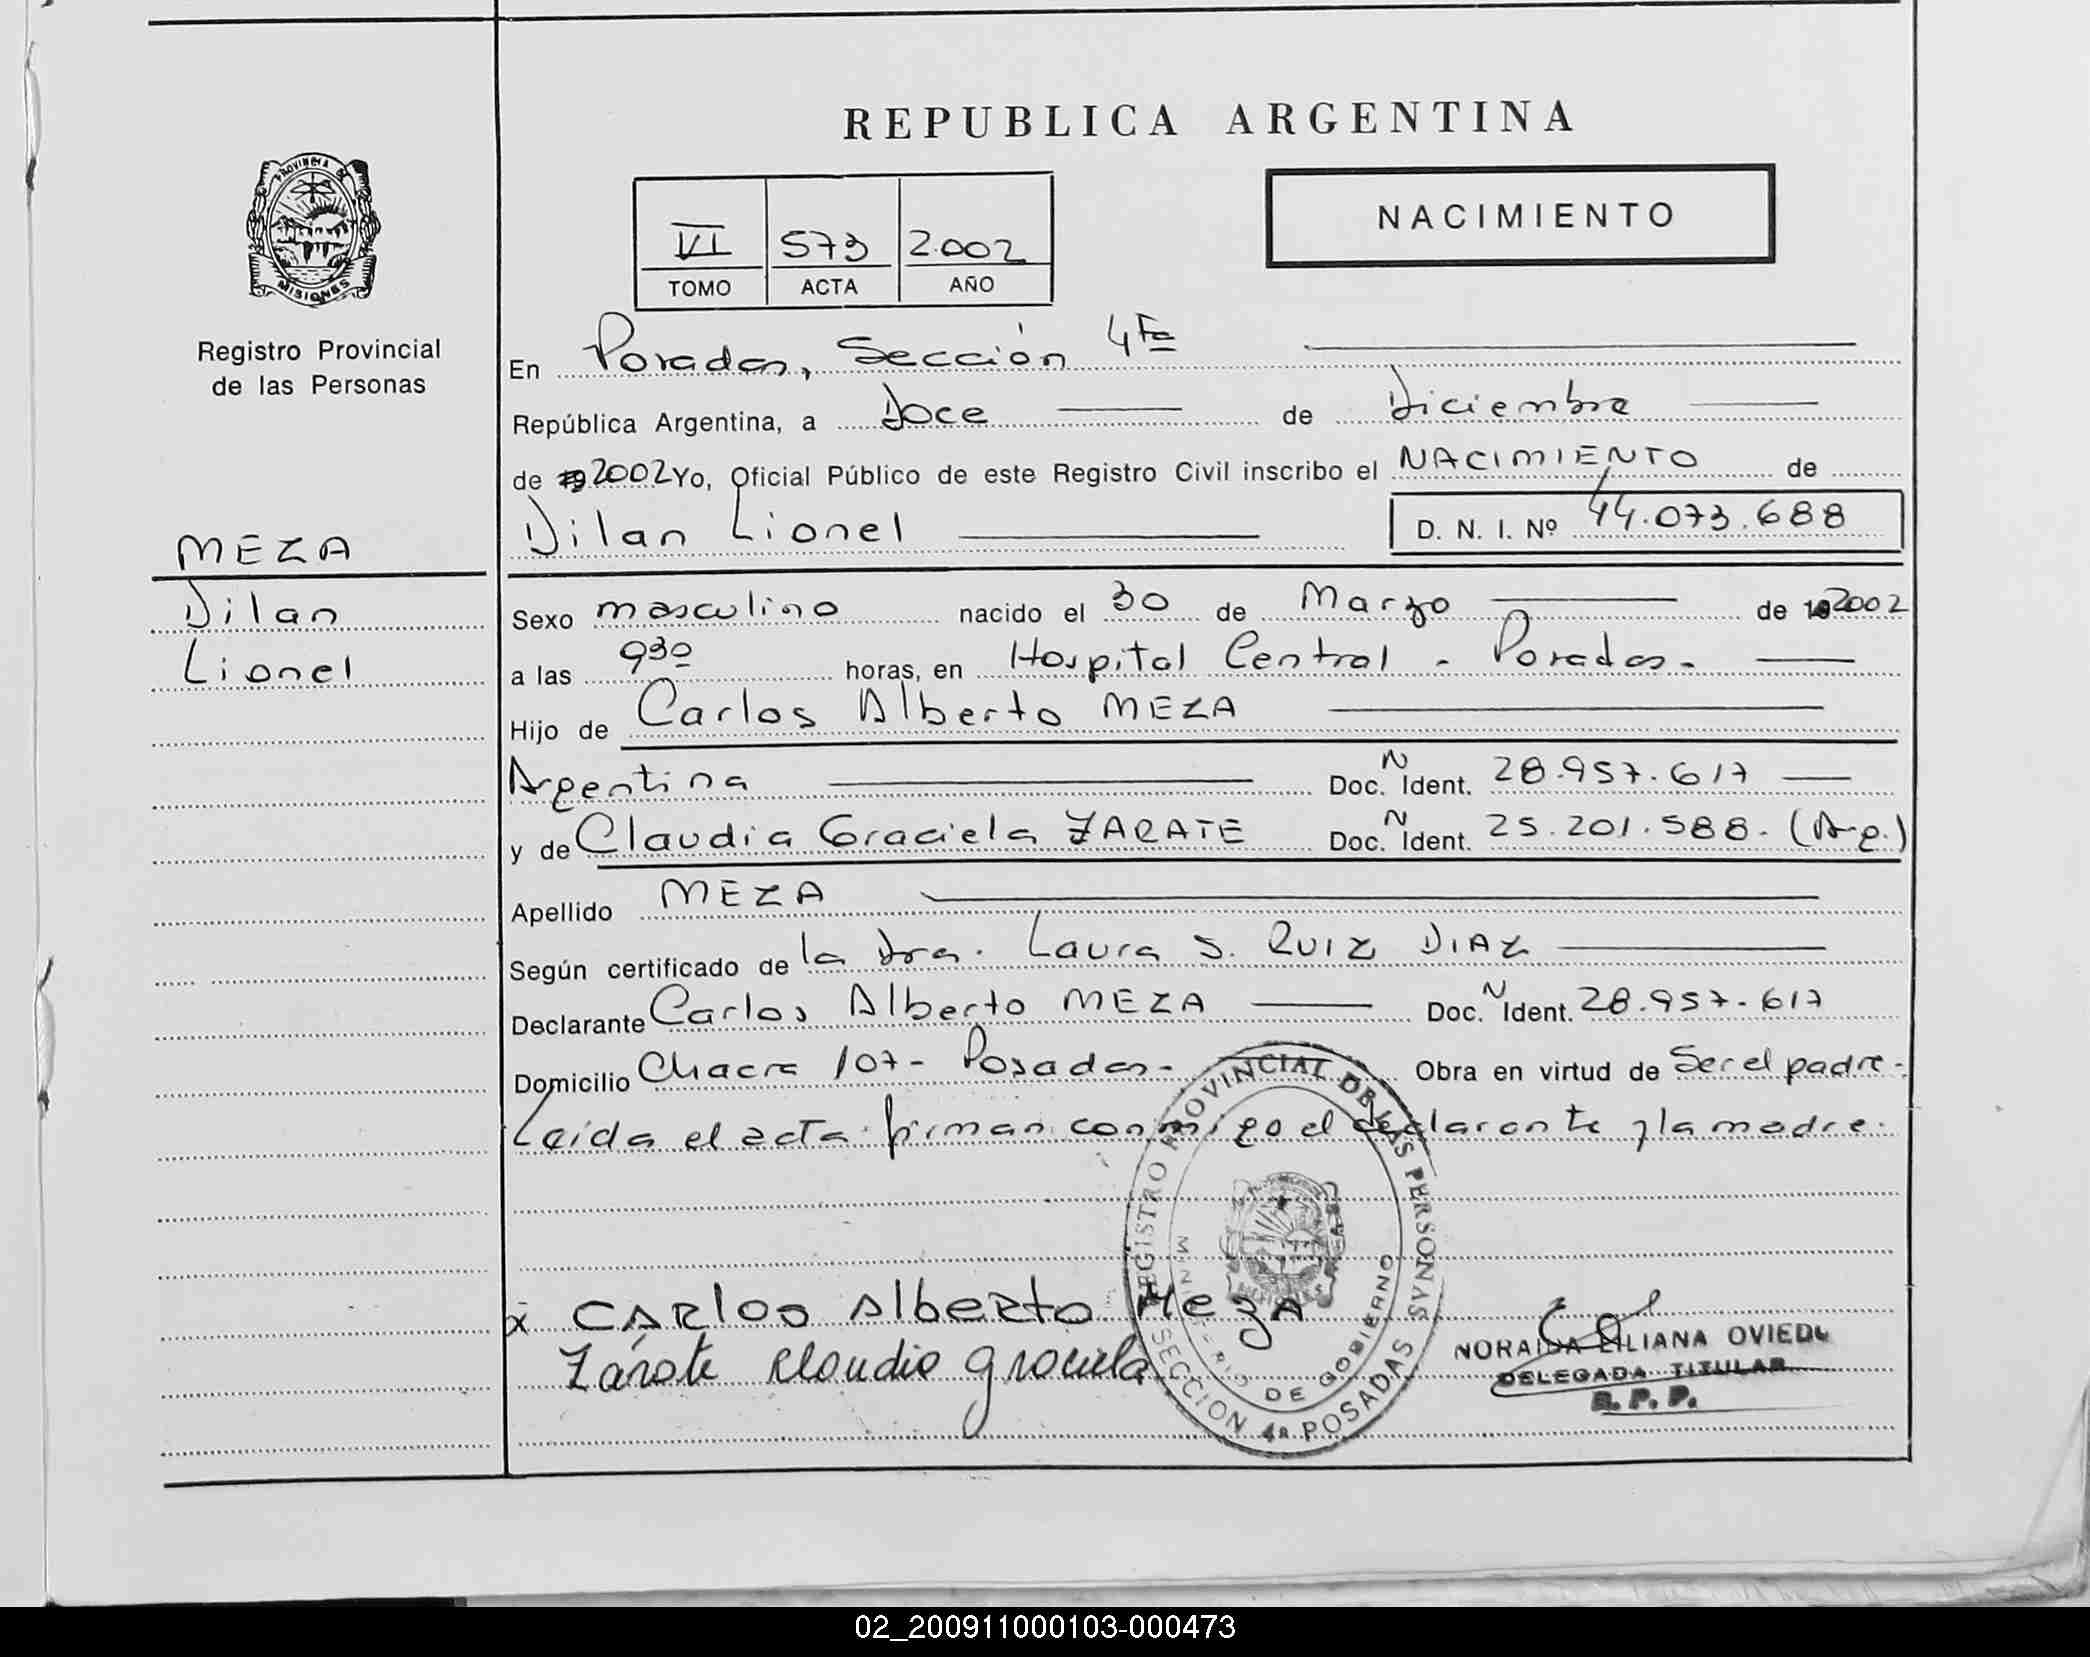 REPUBLICA ARGENTINA
PROVINCIA DE
MISIONES
Registro Provincial
de las Personas
VI 573 2.002
TOMO ACTA AÑO
NACIMIENTO
En Posadas, Sección 4ta
República Argentina, a Doce de Diciembre
de 19 2002 Yo, Oficial Público de este Registro Civil inscribo el NACIMIENTO de
Dilan Lionel D. N. I. Nº 44.073.688
MEZA
Dilan
Lionel
Sexo masculino nacido el 30 de Marzo de 19 2002
a las 930 horas, en Hospital Central - Posadas-
Hijo de Carlos Alberto MEZA
Argentina Doc. N Ident. 28.957.617
y de Claudia Graciela ZARATE Doc. N Ident. 25.201.588. (Arg.)
Apellido MEZA
Según certificado de la Dra. Laura S. RUIZ DIAZ
Declarante Carlos Alberto MEZA Doc. N Ident. 28.957.617
Domicilio Chacra 107- Posadas- Obra en virtud de Ser el padre-
Leida el acta firman conmigo el declarante y la madre.
REGISTRO PROVINCIAL DE LAS PERSONAS
MINISTERIO DE GOBIERNO
SECCION 4a POSADAS
x CARlos Alberto MezA
Zárate Claudia Graciela
NORAIDA LILIANA OVIEDO
DELEGADA TITULAR
R. P. P.
02_200911000103-000473